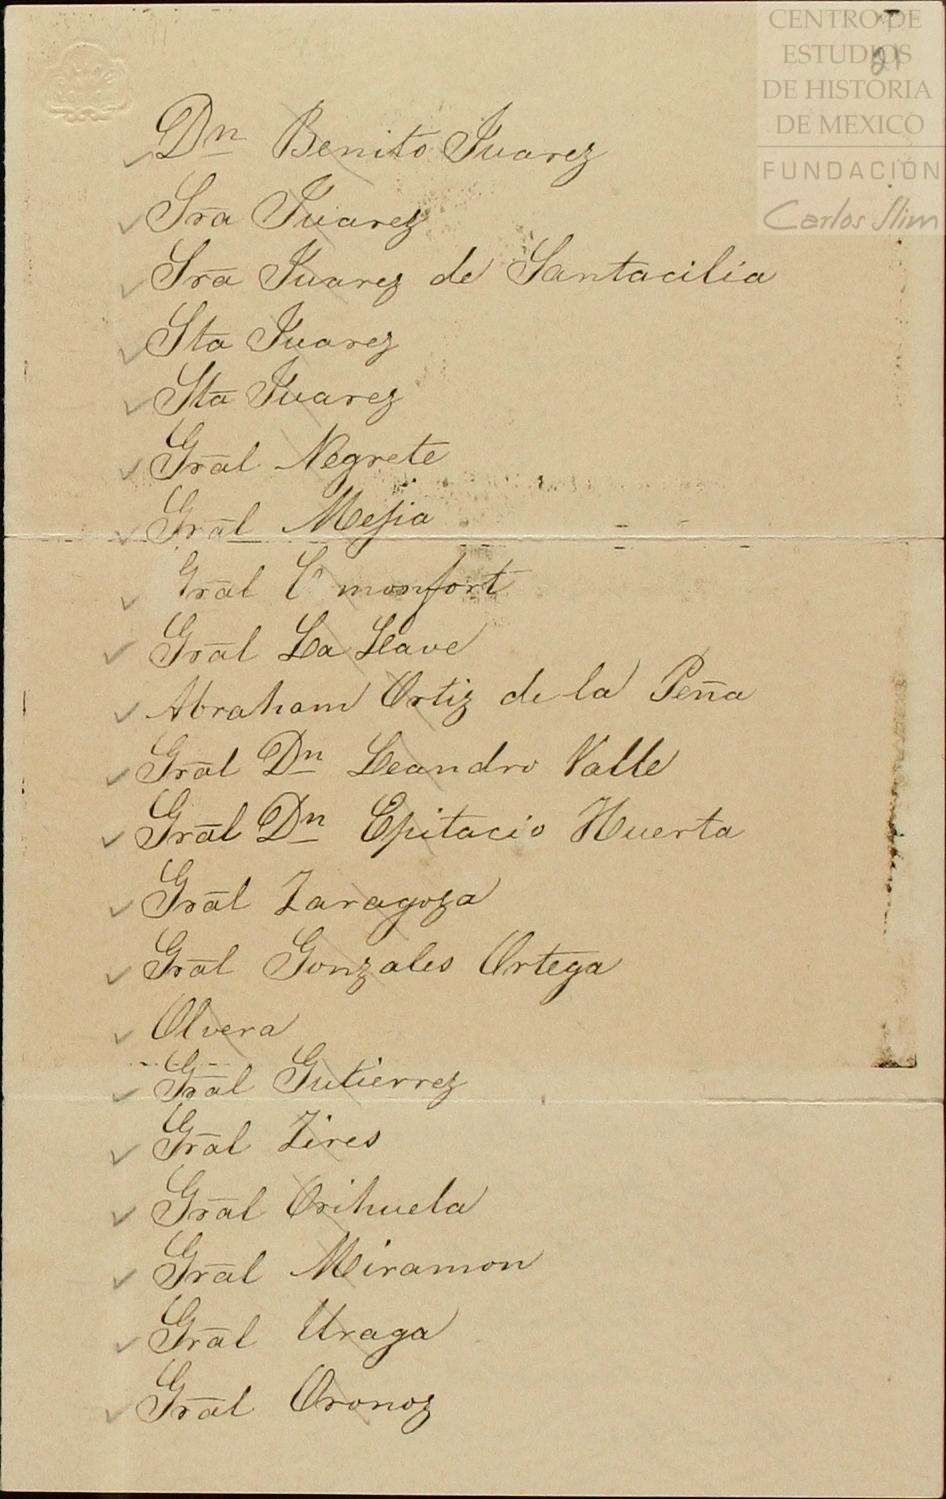 CENTRO DE
ESTUDIOS
DE HISTORIA
DE MEXICO
FUNDACIÓN
Carlos Slim
21
Dn Benito Juarez
Sra Juarez
Sra Juarez de Santacilia
Sta Juarez
Sta Juarez
Gral Negrete
Gral Mejia
Gral Comonfort
Gral La Llave
Abraham Ortiz de la Peña
Gral Dn Leandro Valle
Gral Dn Epitacio Huerta
Gral Zaragoza
Gral Gonzales Ortega
Olvera
Gral Gutierrez
Gral Zires
Gral Orihuela
Gral Miramon
Gral Uraga
Gral Oronoz